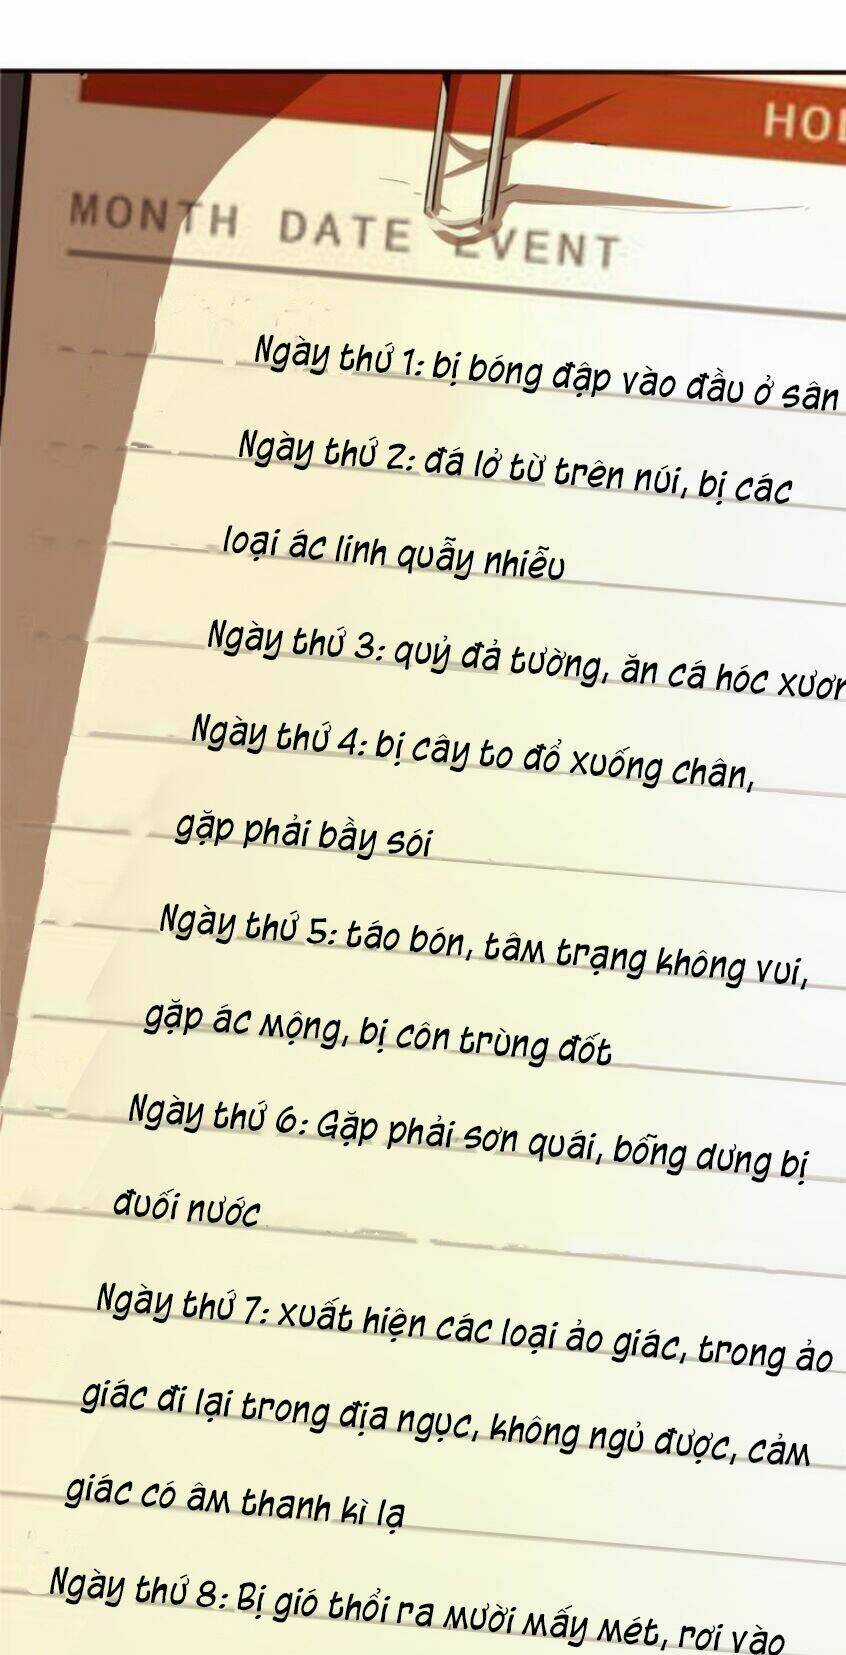 HO
MONTH DATE EVENT
Ngày thứ 1: bị bóng đập vào đầu ở sân
Ngày thứ 2: đá lở từ trên núi, bị các
loại ác linh quẫy nhiễu
Ngày thứ 3: quỷ đả tường, ăn cá hóc xươn
Ngày thứ 4: bị cây to đổ xuống chân,
gặp phải bầy sói
Ngày thứ 5: táo bón, tâm trạng không vui,
gặp ác mộng, bị côn trùng đốt
Ngày thứ 6: Gặp phải sơn quái, bỗng dưng bị
đuối nước
Ngày thứ 7: xuất hiện các loại ảo giác, trong ảo
giác đi lại trong địa ngục, không ngủ được, cảm
giác có âm thanh kì lạ
Ngày thứ 8: Bị gió thổi ra mười mấy mét, rơi vào